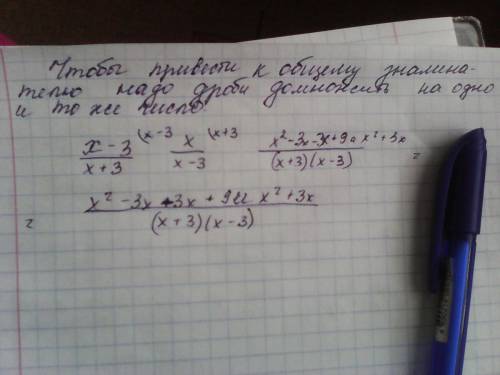 Чтобы привести к общему знамина-
телю надо дроби домножить на одно
и то же число.
(x-3 (x+3
x-3 x x²-3x-3x+9 и x²+3x
x+3 x-3 (x+3)(x-3) =
x²-3x-3x+9 и x²+3x
= (x+3)(x-3)